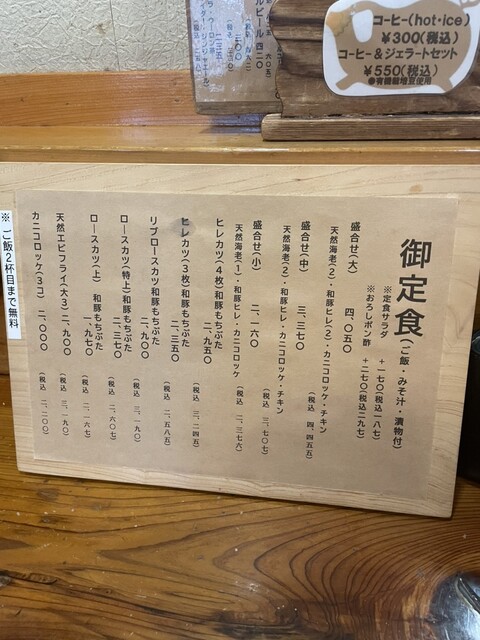 コーヒー(hot・ice)
¥300(税込)
コーヒー&ジェラートセット
¥550(税込)
●有機栽培豆使用
御定食(ご飯・みそ汁・漬物付)
※定食サラダ +一七〇(税込一八七)
※おろしポン酢 +二七〇(税込二九七)
盛合せ(大) 四、〇五〇
天然海老(2)・和豚ヒレ(2)・カニコロッケ・チキン
(税込 四、四五五)
盛合せ(中) 三、三七〇
天然海老(2)・和豚ヒレ・カニコロッケ・チキン
(税込 三、七〇七)
盛合せ(小) 二、一六〇
天然海老(1)・和豚ヒレ・カニコロッケ
(税込 二、三七六)
ヒレカツ(4枚)和豚もちぶた
二、九五〇 (税込 三、二四五)
ヒレカツ(3枚)和豚もちぶた
二、三五〇 (税込 二、五八五)
リブロースカツ和豚もちぶた
二、九〇〇 (税込 三、一九〇)
ロースカツ(特上)和豚もちぶた
二、三七〇 (税込 二、六〇七)
ロースカツ(上) 和豚もちぶた
一、九七〇 (税込 二、一六七)
天然エビフライ(大3)二、九〇〇 (税込 三、一九〇)
カニコロッケ(3コ) 二、〇〇〇 (税込 二、二〇〇)
※ご飯2杯目まで無料